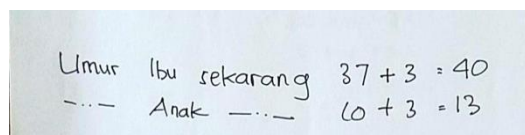 Umur Ibu sekarang 37 + 3 = 40
-..- Anak -..- 10 + 3 = 13